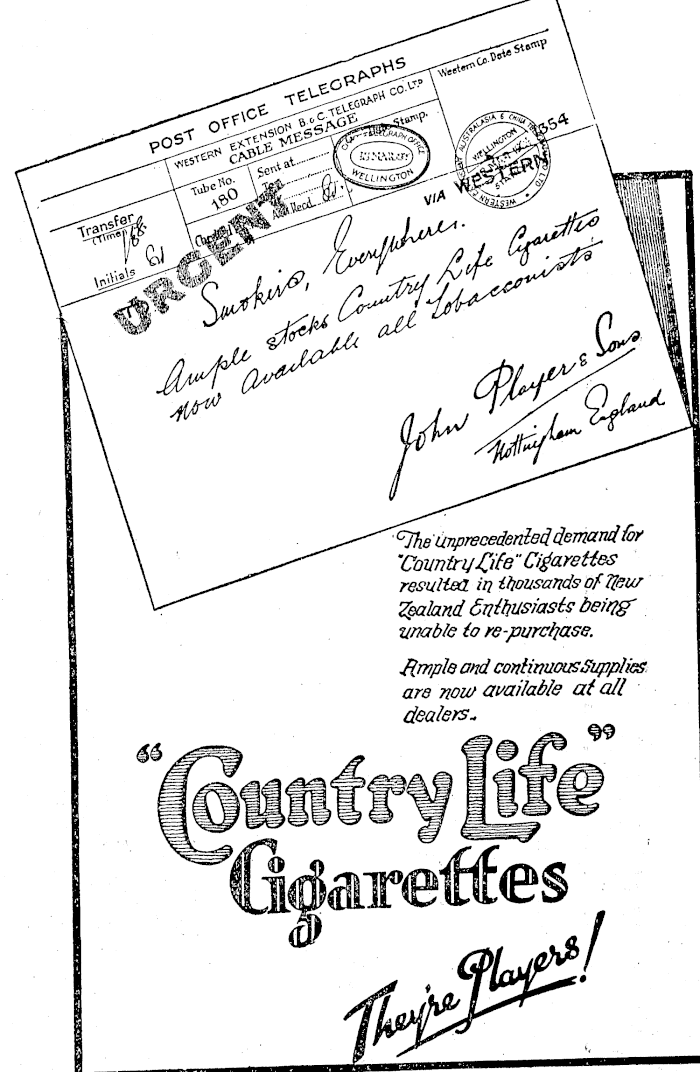 POST OFFICE TELEGRAPHS
WESTERN EXTENSION B & C TELEGRAPH CO. LTD
CABLE MESSAGE
Western Co. Date Stamp
Tube No.
180
Sent at
Stamp.
WELLINGTON
WELLINGTON
354
Transfer
(Time)
Initials
URGENT
VIA WESTERN
Smokers, Everywhere.
Ample stocks Country Life Cigarettes
now available all tobacconists
John Player & Sons
Nottingham England
The unprecedented demand for
"Country Life" Cigarettes
resulted in thousands of New
Zealand Enthusiasts being
unable to re-purchase.
Ample and continuous Supplies
are now available at all
dealers.
"Country Life"
Cigarettes
They're Players!